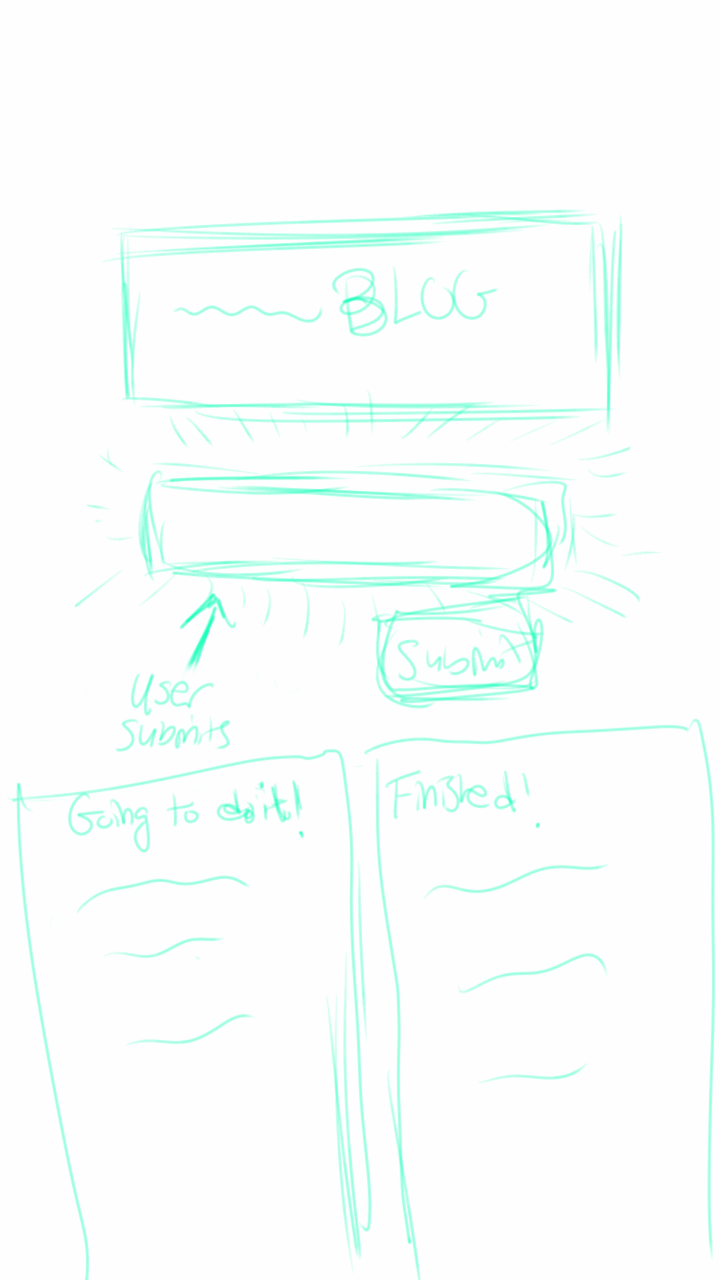 BLOG
Submit
User
submits
Going to do it!
Finished!